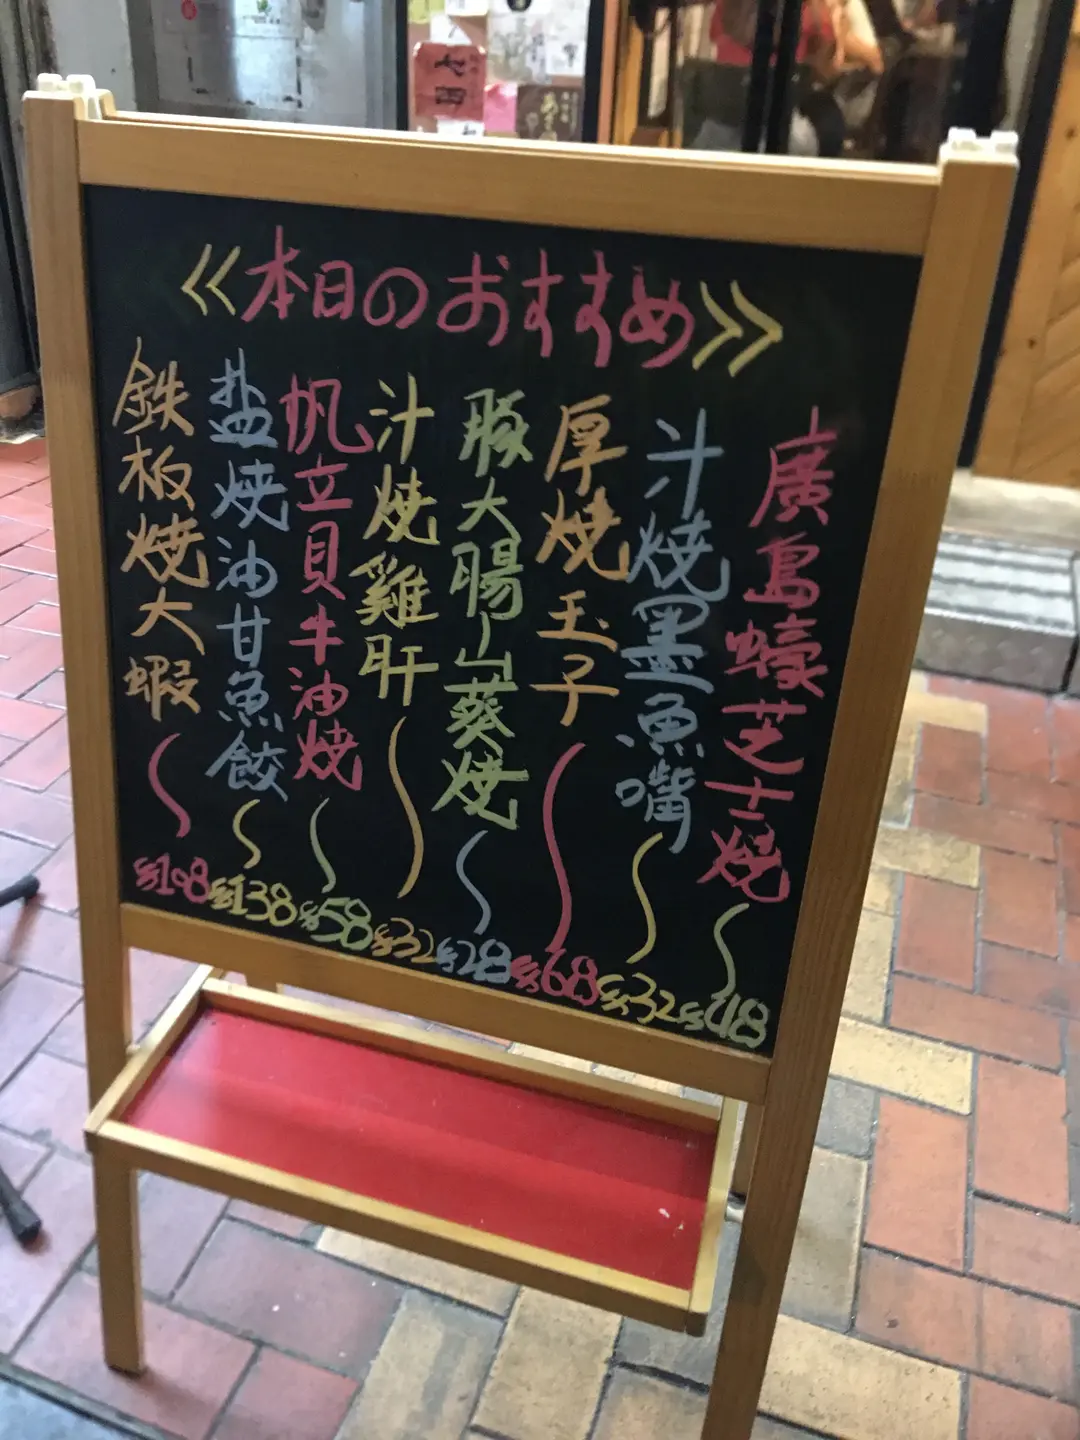 <<本日のおすすめ>>
廣島蠔芝士燒 $48
汁燒墨魚嘴 $32
厚燒玉子 $68
豚大腸山葵燒 $28
汁燒雞肝 $32
帆立貝牛油燒 $58
盐焼油甘魚餃 $138
鉄板焼大蝦 $108